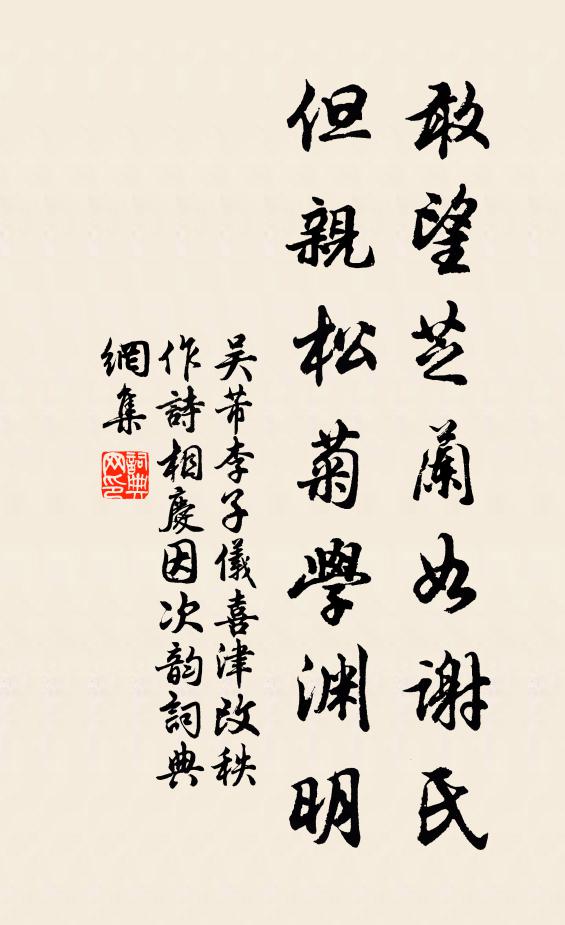 敢望芝蘭如謝氏
但親松菊學淵明
吴芾李子儀喜津改秩
作詩相慶因次韵詞典
網集
詞典
网印